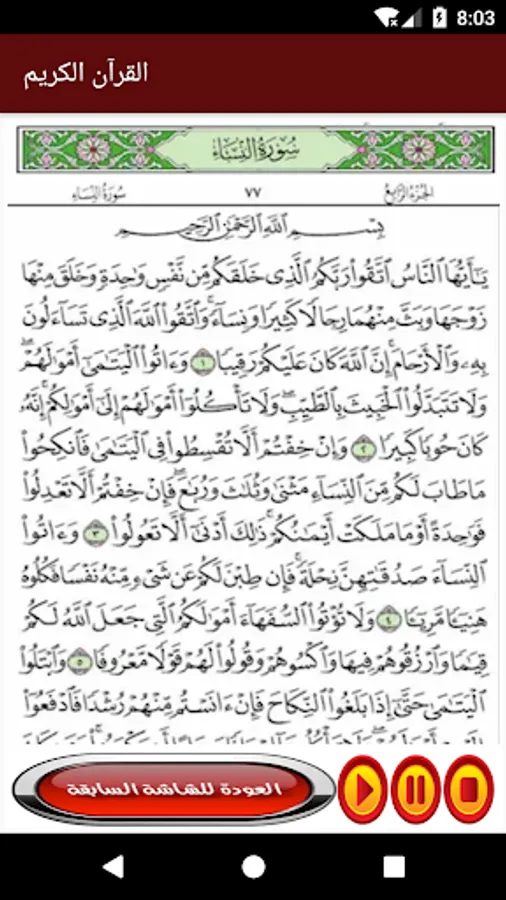 8:03
القرآن الكريم
سُورَةُ النِّسَاءِ
الجُزْءُ الرَّابِعُ ٧٧ سُورَةُ النِّسَاءِ
بِسْمِ اللَّهِ الرَّحْمَٰنِ الرَّحِيمِ
يَٰٓأَيُّهَا ٱلنَّاسُ ٱتَّقُوا۟ رَبَّكُمُ ٱلَّذِى خَلَقَكُم مِّن نَّفْسٍ وَٰحِدَةٍ وَخَلَقَ مِنْهَا
زَوْجَهَا وَبَثَّ مِنْهُمَا رِجَالًا كَثِيرًا وَنِسَآءً ۚ وَٱتَّقُوا۟ ٱللَّهَ ٱلَّذِى تَسَآءَلُونَ
بِهِۦ وَٱلْأَرْحَامَ ۚ إِنَّ ٱللَّهَ كَانَ عَلَيْكُمْ رَقِيبًا ١ وَءَاتُوا۟ ٱلْيَتَٰمَىٰٓ أَمْوَٰلَهُمْ ۖ
وَلَا تَتَبَدَّلُوا۟ ٱلْخَبِيثَ بِٱلطَّيِّبِ ۖ وَلَا تَأْكُلُوٓا۟ أَمْوَٰلَهُمْ إِلَىٰٓ أَمْوَٰلِكُمْ ۚ إِنَّهُۥ
كَانَ حُوبًا كَبِيرًا ٢ وَإِنْ خِفْتُمْ أَلَّا تُقْسِطُوا۟ فِى ٱلْيَتَٰمَىٰ فَٱنكِحُوا۟
مَا طَابَ لَكُم مِّنَ ٱلنِّسَآءِ مَثْنَىٰ وَثُلَٰثَ وَرُبَٰعَ ۖ فَإِنْ خِفْتُمْ أَلَّا تَعْدِلُوا۟
فَوَٰحِدَةً أَوْ مَا مَلَكَتْ أَيْمَٰنُكُمْ ۚ ذَٰلِكَ أَدْنَىٰٓ أَلَّا تَعُولُوا۟ ٣ وَءَاتُوا۟
ٱلنِّسَآءَ صَدُقَٰتِهِنَّ نِحْلَةً ۚ فَإِن طِبْنَ لَكُمْ عَن شَىْءٍ مِّنْهُ نَفْسًا فَكُلُوهُ
هَنِيٓـًٔا مَّرِيٓـًٔا ٤ وَلَا تُؤْتُوا۟ ٱلسُّفَهَآءَ أَمْوَٰلَكُمُ ٱلَّتِى جَعَلَ ٱللَّهُ لَكُمْ
قِيَٰمًا وَٱرْزُقُوهُمْ فِيهَا وَٱكْسُوهُمْ وَقُولُوا۟ لَهُمْ قَوْلًا مَّعْرُوفًا ٥ وَٱبْتَلُوا۟
ٱلْيَتَٰمَىٰ حَتَّىٰٓ إِذَا بَلَغُوا۟ ٱلنِّكَاحَ فَإِنْ ءَانَسْتُم مِّنْهُمْ رُشْدًا فَٱدْفَعُوٓا۟
العودة للشاشة السابقة